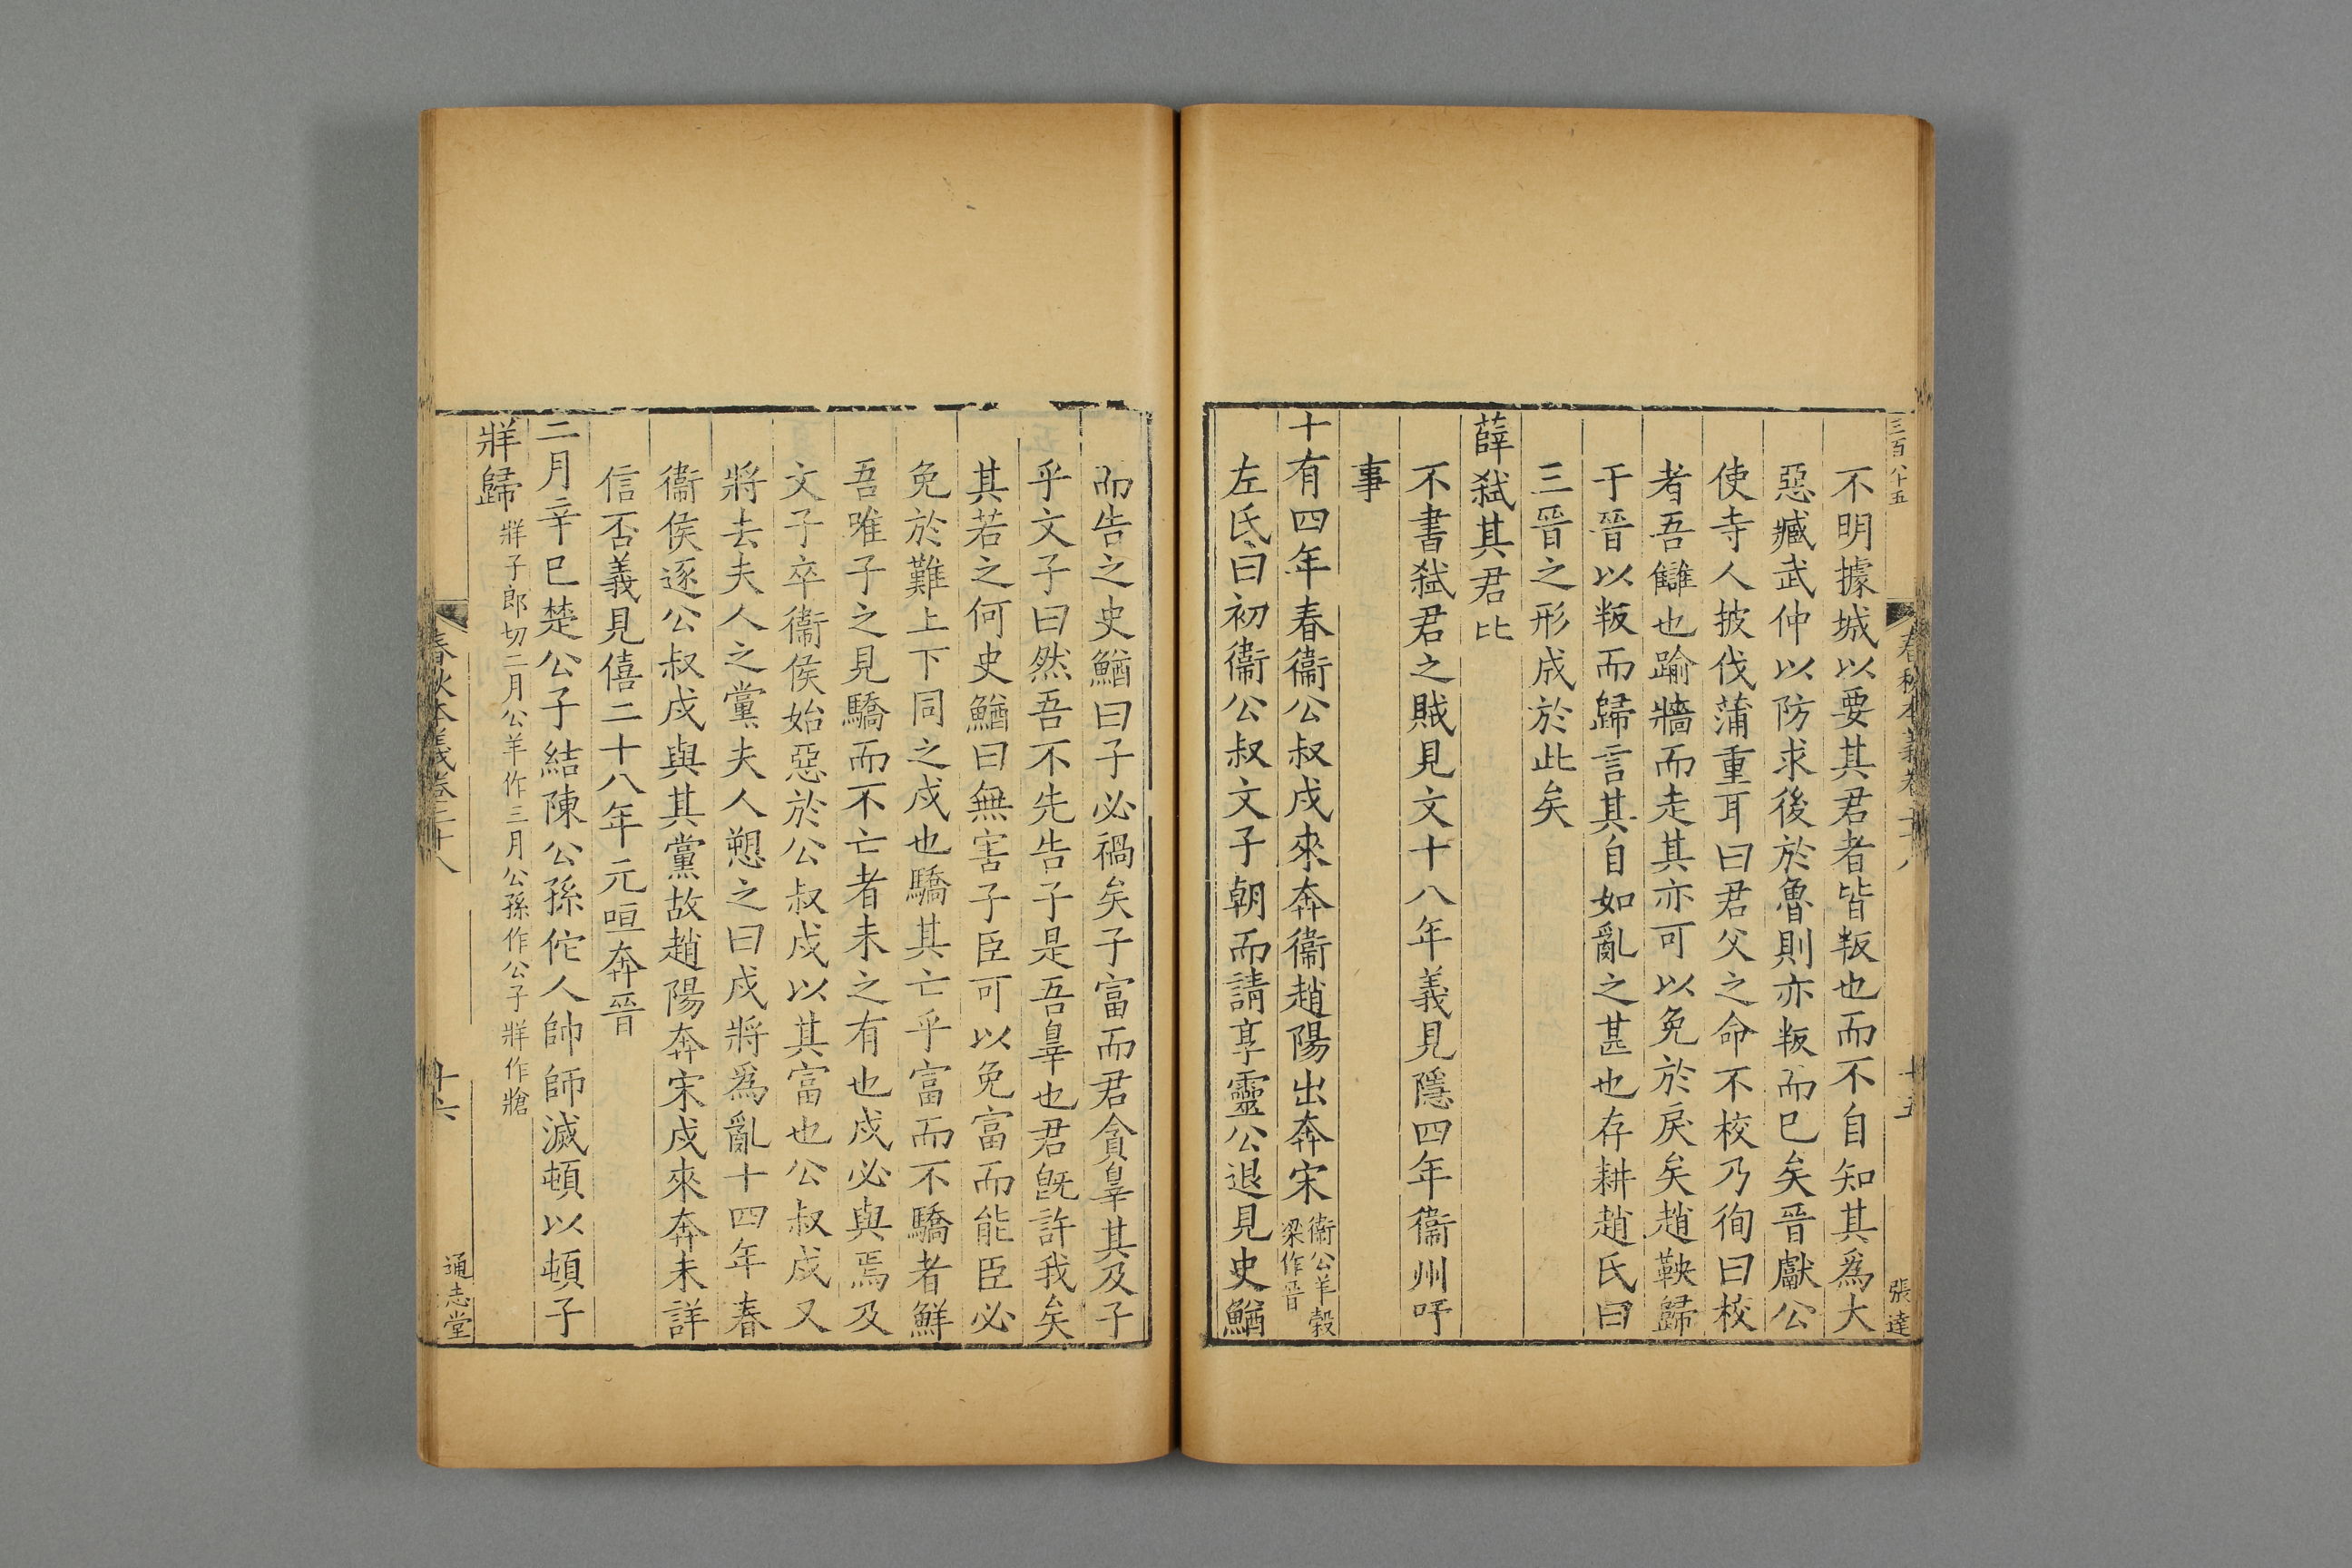 三百八十五
春秋本義卷二十八
十五
張達
不明據城以要其君者皆叛也而不自知其爲大
惡臧武仲以防求後於魯則亦叛而已矣晉獻公
使寺人披伐蒲重耳曰君父之命不校乃徇曰校
者吾讎也踰牆而走其亦可以免於戾矣趙鞅歸
于晉以叛而歸言其自如亂之甚也存耕趙氏曰
三晉之形成於此矣
薛弑其君比
不書弑君之賊見文十八年義見隱四年衞州吁
事
十有四年春衞公叔戍來奔衞趙陽出奔宋衞公羊穀梁作晉
左氏曰初衞公叔文子朝而請享靈公退見史鰌
而告之史鰌曰子必禍矣子富而君貪辠其及子
乎文子曰然吾不先告子是吾辠也君旣許我矣
其若之何史鰌曰無害子臣可以免富而能臣必
免於難上下同之戍也驕其亡乎富而不驕者鮮
吾唯子之見驕而不亡者未之有也戍必與焉及
文子卒衞侯始惡於公叔戍以其富也公叔戍又
將去夫人之黨夫人愬之曰戍將爲亂十四年春
衞侯逐公叔戍與其黨故趙陽奔宋戍來奔未詳
信否義見僖二十八年元咺奔晉
二月辛巳楚公子結陳公孫佗人帥師滅頓以頓子
牂歸牂子郎切二月公羊作三月公孫作公子牂作牄
春秋本義卷二十八
十六
通志堂